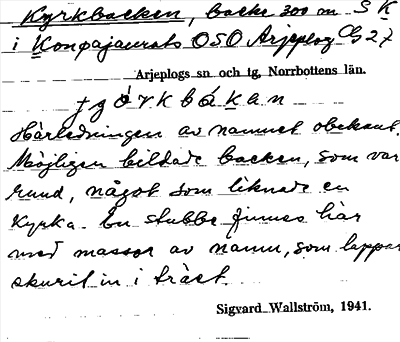 Kyrkbacken, backe 300 m S K
i Konpajaurats OSO Arjeplog Cg 27
Arjeplogs sn och tg, Norrbottens län.
Härledningen av namnet obekant.
Möjligen bildade backen, som var
rund, något som liknade en
kyrka. En stubbe finnes här
med massor av namn, som lappar
skurit in i träet.
Sigvard Wallström, 1941.